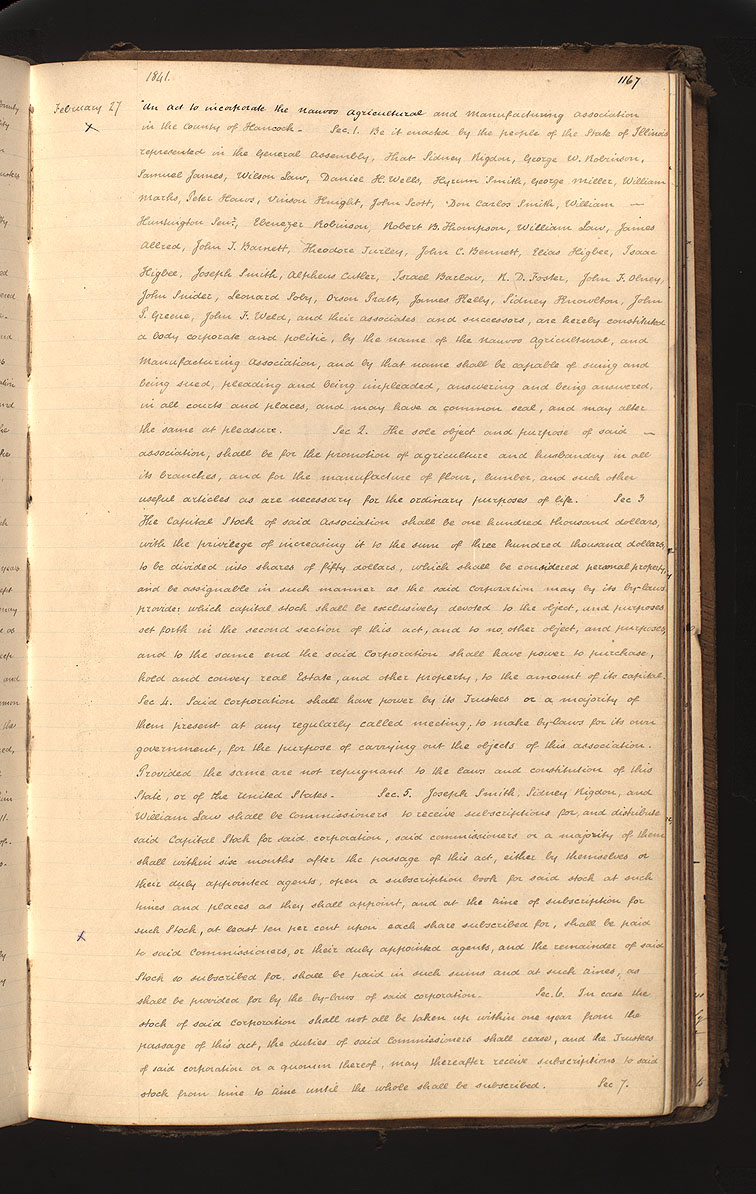 1841. 1167
February 27 "An Act to incorporate the Nauvoo Agricultural and Manufacturing Association
x in the County of Hancock. Sec. 1. Be it enacted by the people of the State of Illinois
represented in the General Assembly, That Sidney Rigdon, George W. Robinson,
Samuel James, Wilson Law, Daniel H. Wells, Hyrum Smith, George Miller, William
Marks, Peter Haws, Vinson Knight, John Scott, Don Carlos Smith, William —
Huntington Senr., Ebenezer Robinson, Robert B. Thompson, William Law, James
Allred, John T. Barnett, Theodore Turley, John C. Bennett, Elias Higbee, Isaac
Higbee, Joseph Smith, Alpheus Cutler, Israel Barlow, R. D. Foster, John F. Olney,
John Snider, Leonard Soby, Orson Pratt, James Kelly, Sidney Knowlton, John
P. Greene, John F. Weld, and their associates and successors, are hereby constituted
a body corporate and politic, by the name of the Nauvoo Agricultural, and
Manufacturing Association, and by that name shall be capable of suing and
being sued, pleading and being impleaded, answering and being answered,
in all courts and places, and may have a common seal, and may alter
the same at pleasure. Sec 2. The sole object and purpose of said —
association, shall be for the promotion of agriculture and husbandry in all
its branches, and for the manufacture of flour, lumber, and such other
useful articles as are necessary for the ordinary purposes of life. Sec 3
The Capital Stock of said Association shall be one hundred thousand dollars,
with the privilege of increasing it to the sum of three hundred thousand dollars,
to be divided into shares of fifty dollars, which shall be considered personal property,
and be assignable in such manner as the said Corporation may by its by-laws
provide: which capital stock shall be exclusively devoted to the object, and purposes
set forth in the second section of this act, and to no other object, and purposes,
and to the same end the said Corporation shall have power to purchase,
hold and convey real Estate, and other property, to the amount of its capital.
Sec 4. Said Corporation shall have power by its Trustees or a majority of
them present at any regularly called meeting, to make by-laws for its own
government, for the purpose of carrying out the objects of this association.
Provided the same are not repugnant to the laws and constitution of this
State, or of the United States. Sec. 5. Joseph Smith, Sidney Rigdon, and
William Law shall be Commissioners to receive subscriptions for, and distribute
said Capital Stock for said corporation, said commissioners or a majority of them
shall within six months after the passage of this act, either by themselves or
their duly appointed agents, open a subscription book for said stock at such
times and places as they shall appoint, and at the time of subscription for
x such Stock, at least ten per cent upon each share subscribed for, shall be paid
to said Commissioners, or their duly appointed agents, and the remainder of said
Stock so subscribed for, shall be paid in such sums and at such times, as
shall be provided for by the by-laws of said corporation. Sec. 6. In case the
stock of said Corporation shall not all be taken up within one year from the
passage of this act, the duties of said Commissioners shall cease, and the Trustees
of said corporation or a quorum thereof, may thereafter receive subscriptions to said
stock from time to time until the whole shall be subscribed. Sec 7.